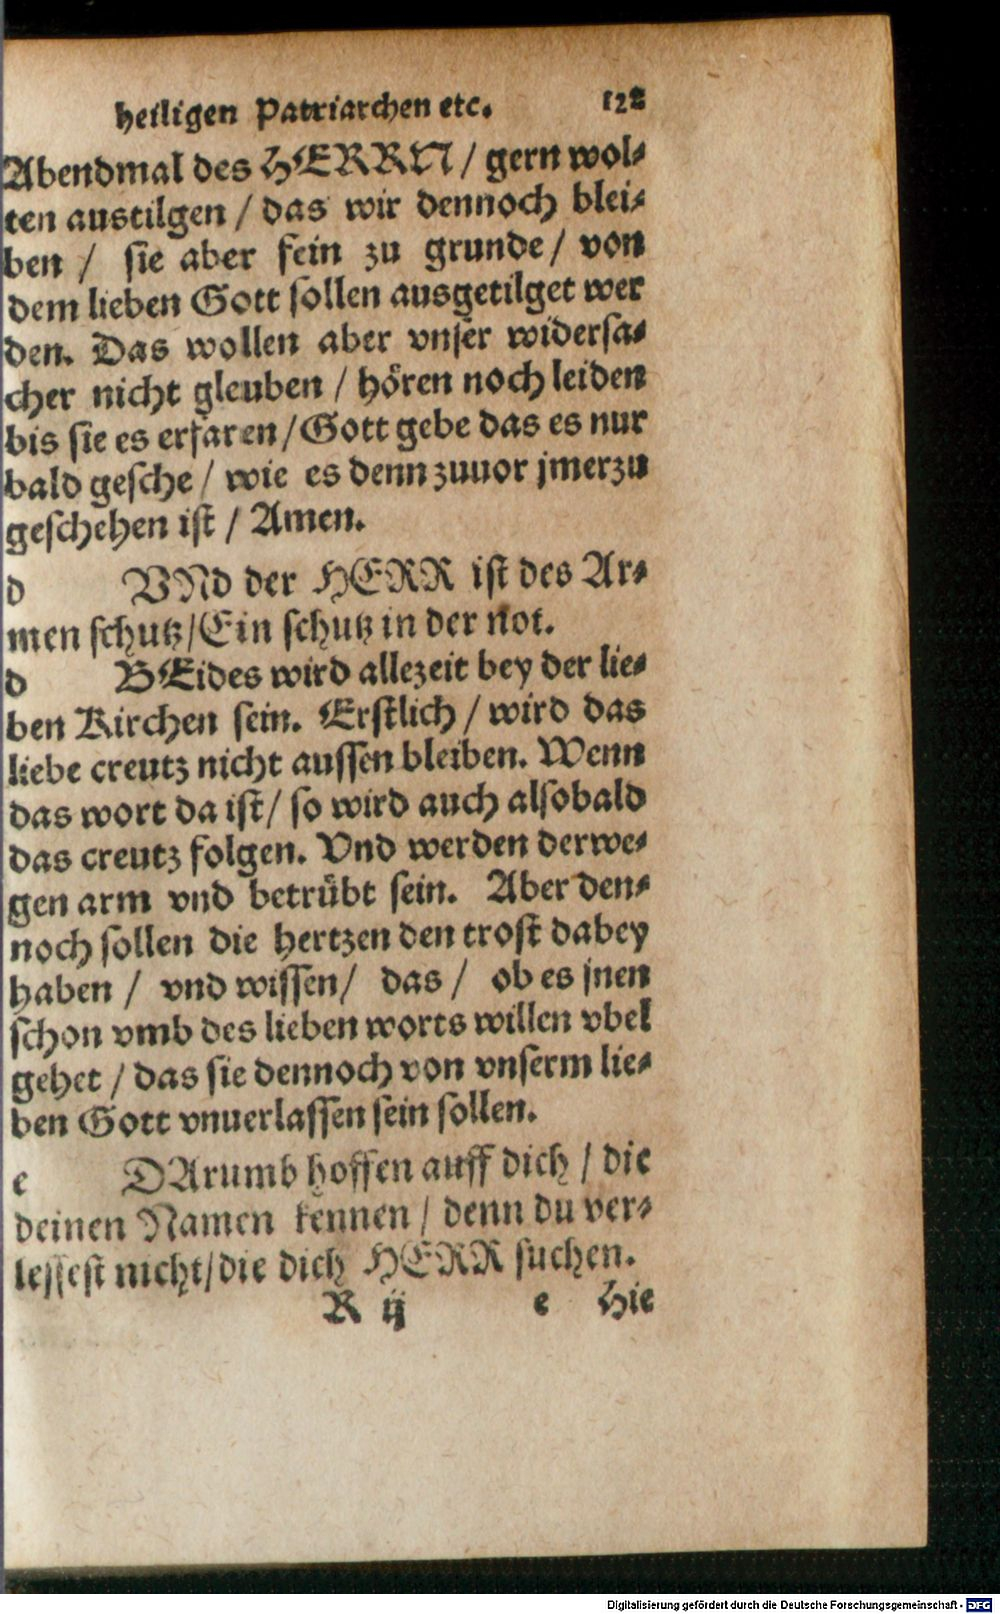 heiligen Patriarchen etc. 128
Abendmal des HERRN / gern wol-
ten austilgen / das wir dennoch blei-
ben / sie aber fein zu grunde / von
dem lieben Gott sollen ausgetilget wer
den. Das wollen aber vnser widersa-
cher nicht gleuben / hören noch leiden
bis sie es erfaren / Gott gebe das es nur
bald gesche / wie es denn zuuor jmerzu
geschehen ist / Amen.
d VNd der HERR ist des Ar-
men schutz / Ein schutz in der not.
d BEides wird allezeit bey der lie-
ben Kirchen sein. Erstlich / wird das
liebe creutz nicht aussen bleiben. Wenn
das wort da ist / so wird auch alsobald
das creutz folgen. Vnd werden derwe-
gen arm vnd betrübt sein. Aber den-
noch sollen die hertzen den trost dabey
haben / vnd wissen / das / ob es jnen
schon vmb des lieben worts willen vbel
gehet / das sie dennoch von vnserm lie-
ben Gott vnuerlassen sein sollen.
e DArumb hoffen auff dich / die
deinen Namen kennen / denn du ver-
lessest nicht / die dich HERR suchen.
R ij e Hie
Digitalisierung gefördert durch die Deutsche Forschungsgemeinschaft - DFG